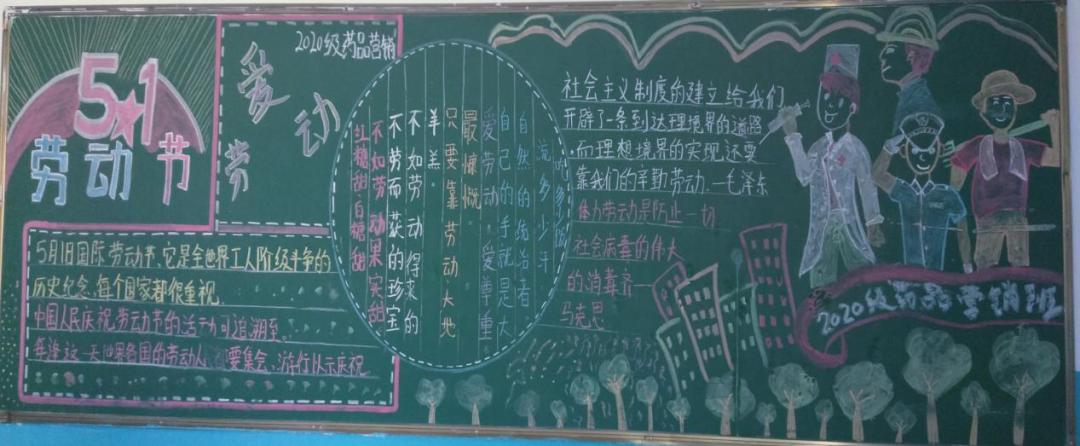 5 1
劳动节
爱
劳
动
2020级药品营销
5月1日国际劳动节,它是全世界工人阶级斗争的
历史纪念,每个国家都很重视
中国人民庆祝劳动节的活动可追溯至
每逢这一天世界各国的劳动人 要集会、游行以示庆祝
吃多少饭
流多少汗
自然的统治者
自己的手就是大
爱劳动 爱尊重
最慷慨
只要靠劳动大地
羊羔。
不如劳动得来的
不劳而获的珍宝
不如劳动果实甜
红糖甜白糖甜
社会主义制度的建立给我们
开辟了一条到达理境界的道路
而理想境界的实现还要
靠我们的辛勤劳动.一毛泽东
体力劳动是防止一切
社会病毒的伟大
的消毒齐一
马克思
2020级药品营销班